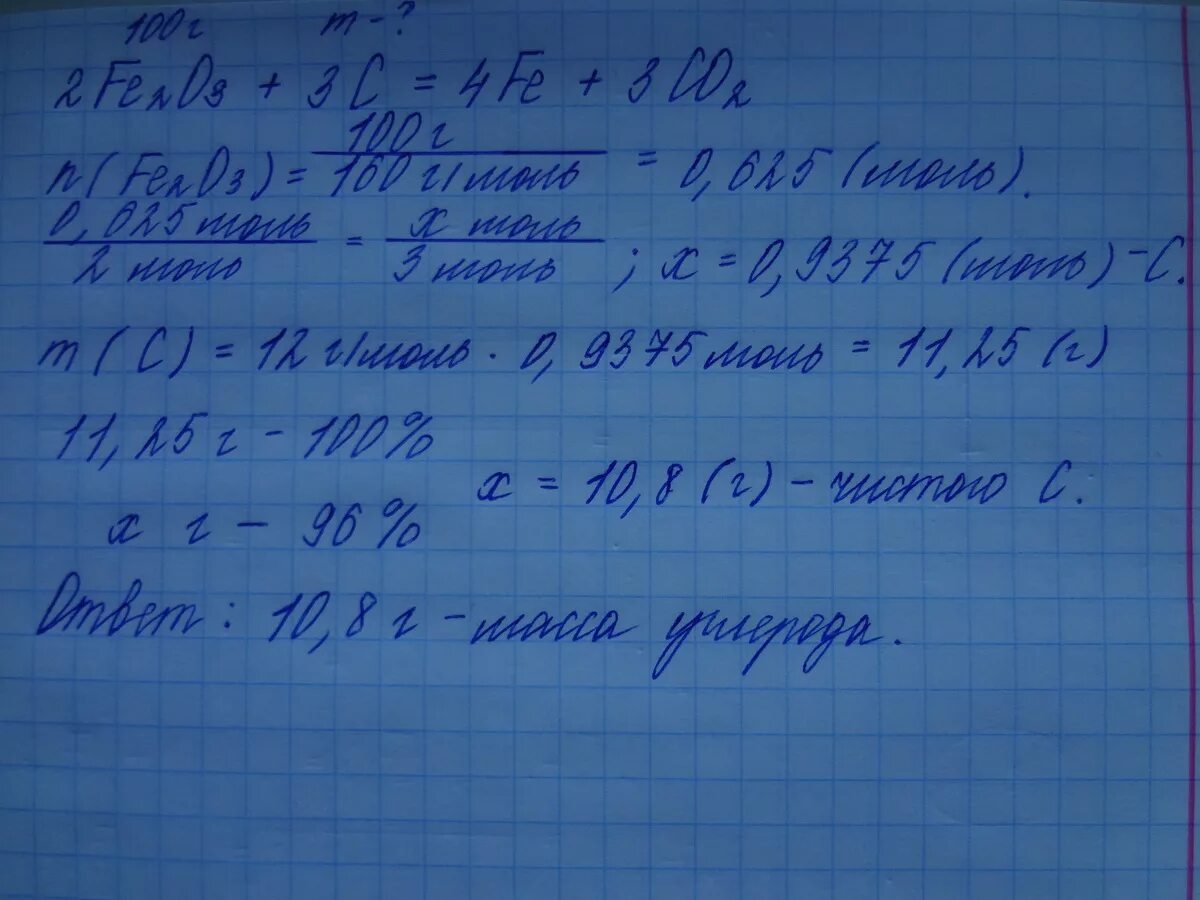 100г m-?
2Fe₂O₃ + 3C = 4Fe + 3CO₂
n(Fe₂O₃) = 100г / 160 г/моль = 0,625 (моль).
0,625 моль / 2 моль = x моль / 3 моль ; x = 0,9375 (моль) - C.
m(C) = 12 г/моль · 0,9375 моль = 11,25 (г)
11,25 г - 100%
x = 10,8 (г) - чистого C.
x г - 96%
Ответ: 10,8 г - масса углерода.